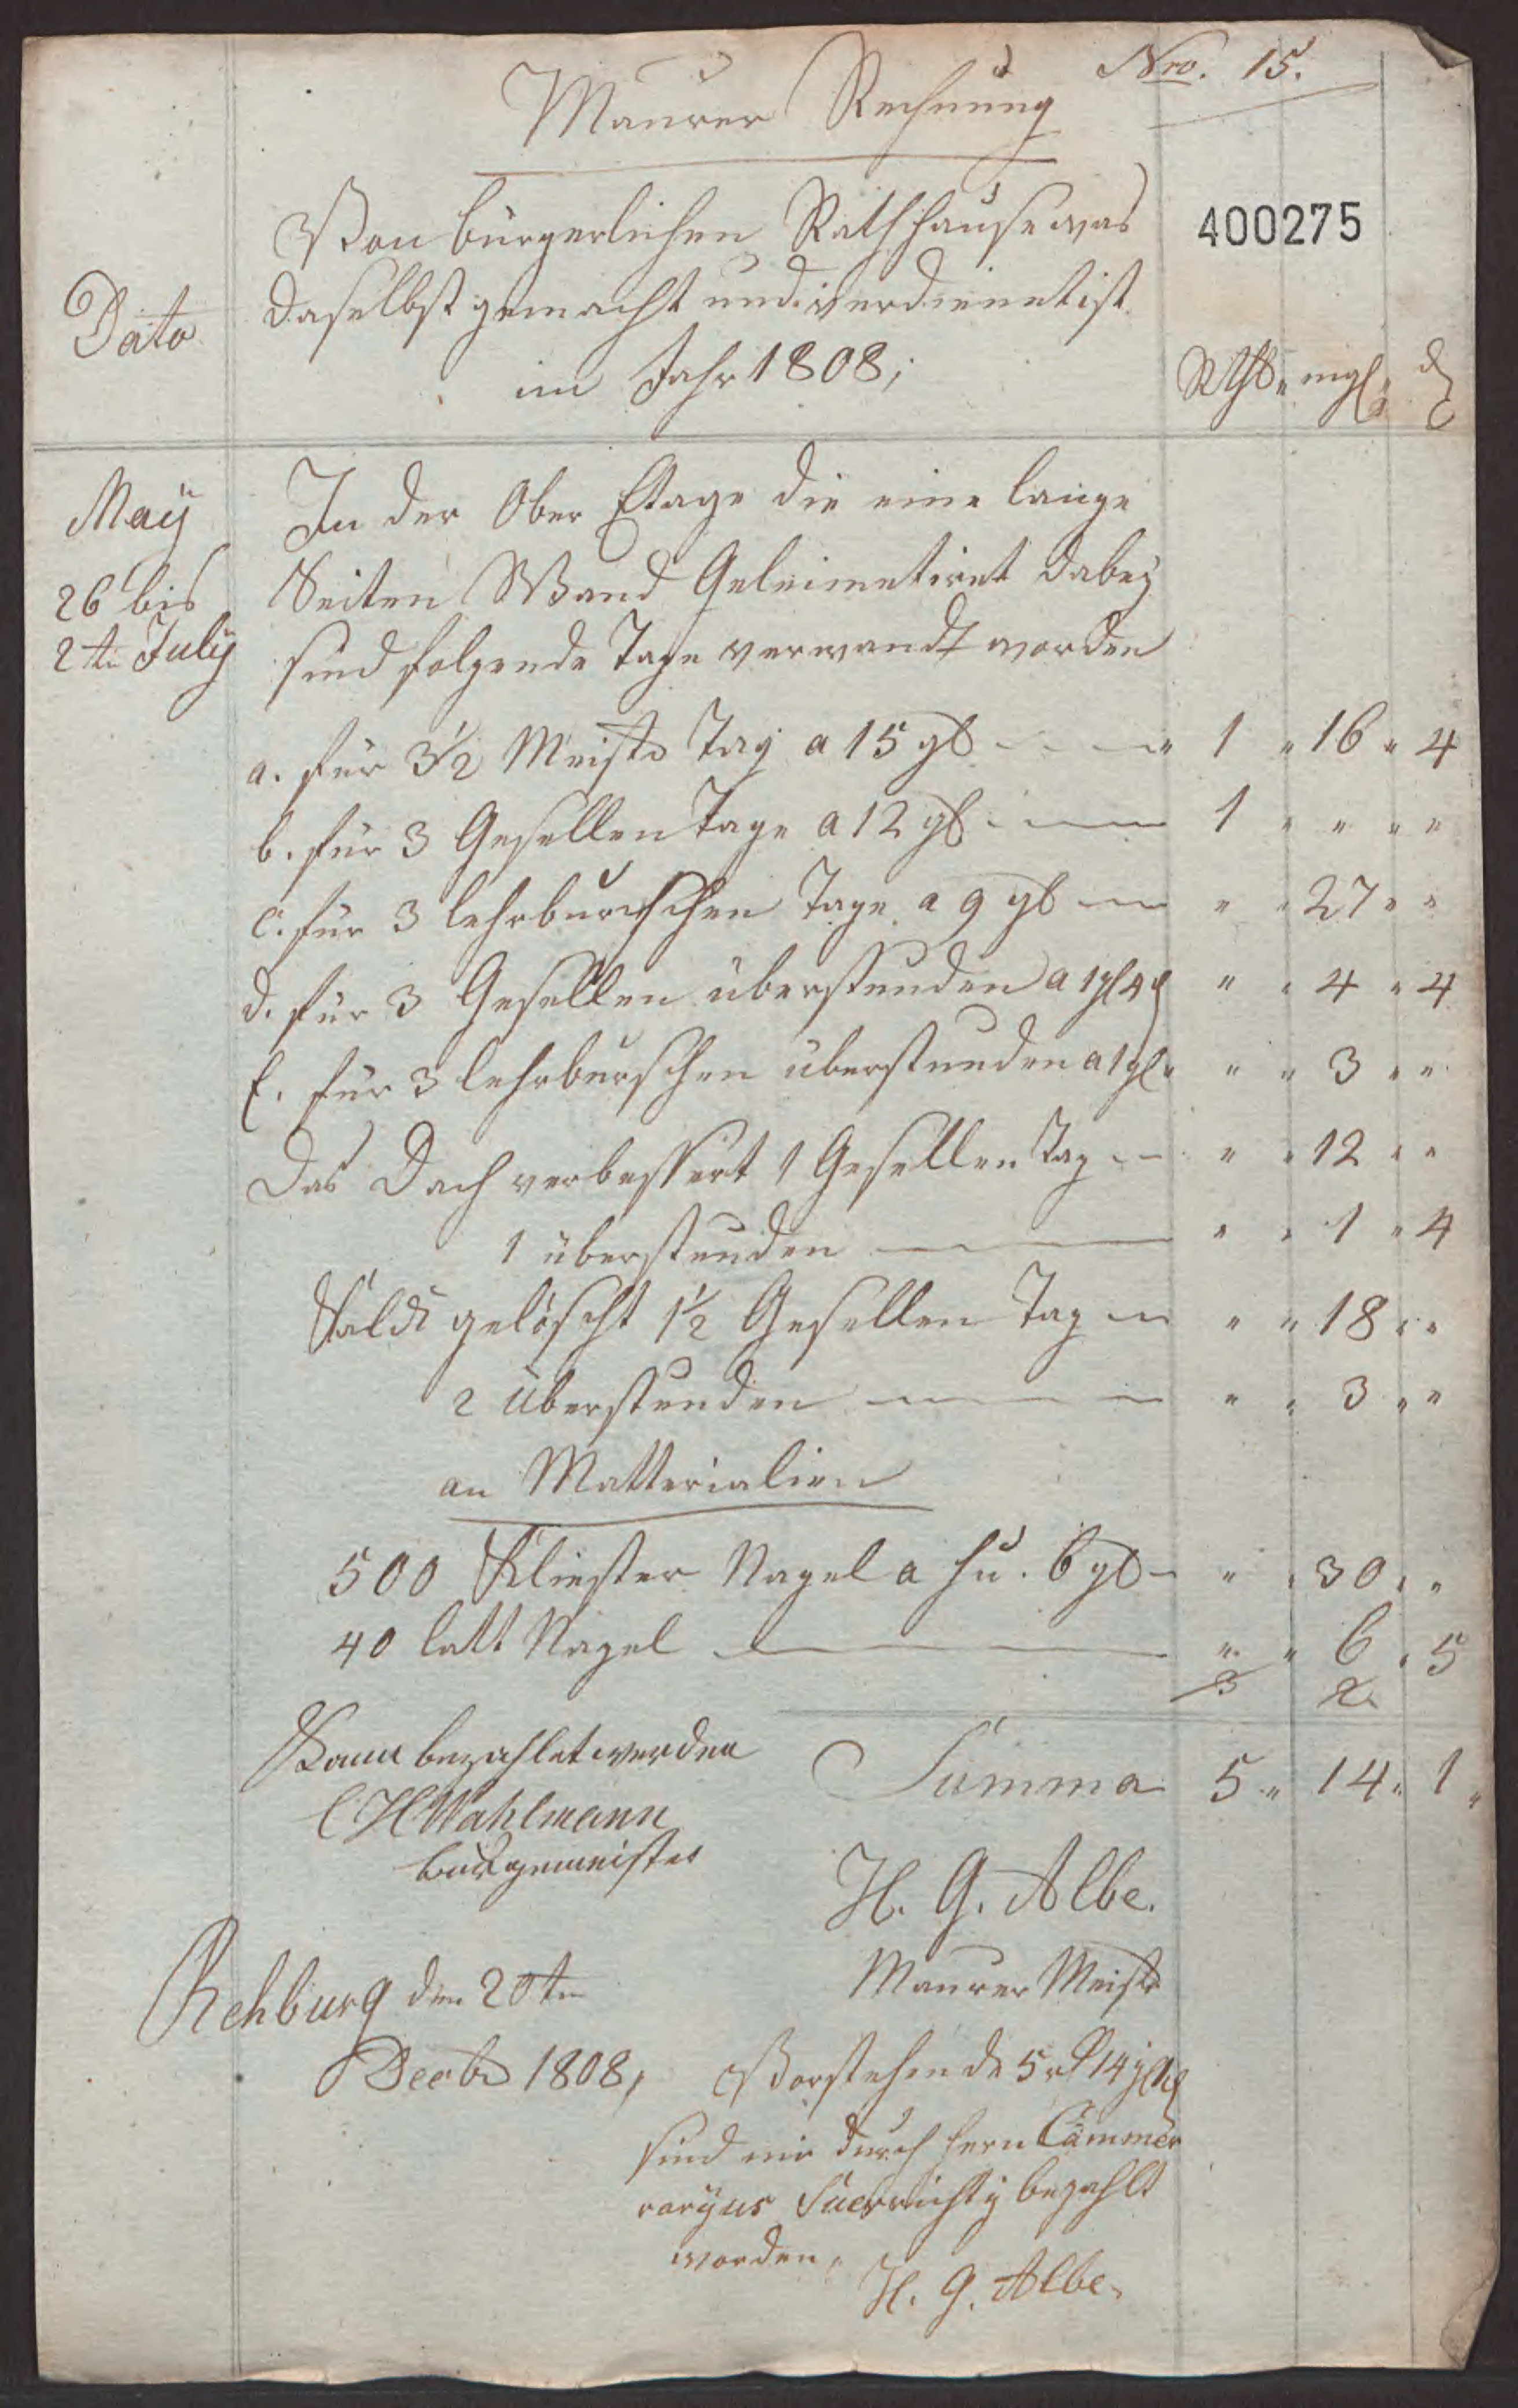 Nro. 15.
Maurer Rechnung
400275
Von bürgerlichen Rathhause was
Dato
daselbst gemacht und verdienet ist
im Jahr 1808;
Rthlr " mgl " d
Maÿ
In der Ober Etage die eine lange
26 bis
Seiten Wand Geleimetiret dabeÿ
2te Julÿ
sind folgende Tage verwandt worden
a. für 3½ Meistr Tag a 15 gl 1 " 16 " 4
b. für 3 Gesellen Tage a 12 gl 1 " " " "
c. für 3 lehrburschen Tage a 9 gl " " 27 " "
d. für 3 Gesellen überstunden a 1 gl 4 d " " 4 " 4
E. für 3 lehrburschen überstunden a 1 gl " " " 3 " "
Das Dach verbessert 1 Gesellen Tag " " 12 " "
1 überstunden " " 1 " 4
Kalck gelöscht 1½ Gesellen Tag " " 18 " "
2 überstunden " " 3 " "
an Matterialien
500 Kliester Nagel a hu. 6 gl " " 30 " "
40 latt Nagel " " 6 " 5
3 2
Kann bezahlet werden
Summa 5 " 14 " 1 "
C H Wahlmann
burgemeister
H. G. Albe.
Maurer Meistr
Rehburg den 20ten
Decbr 1808,
Vorstehende 5 rl 14 gl 1 d
sind mir durch hern Cämmer
raryus bezahlt
worden.
H. G. Albe.